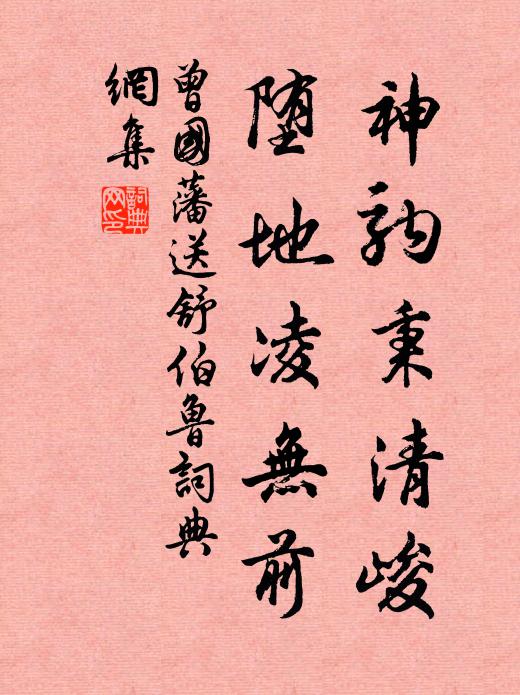 神駒秉清峻
堕地凌無前
曾國藩送舒伯魯詞典
網集
詞典
网印